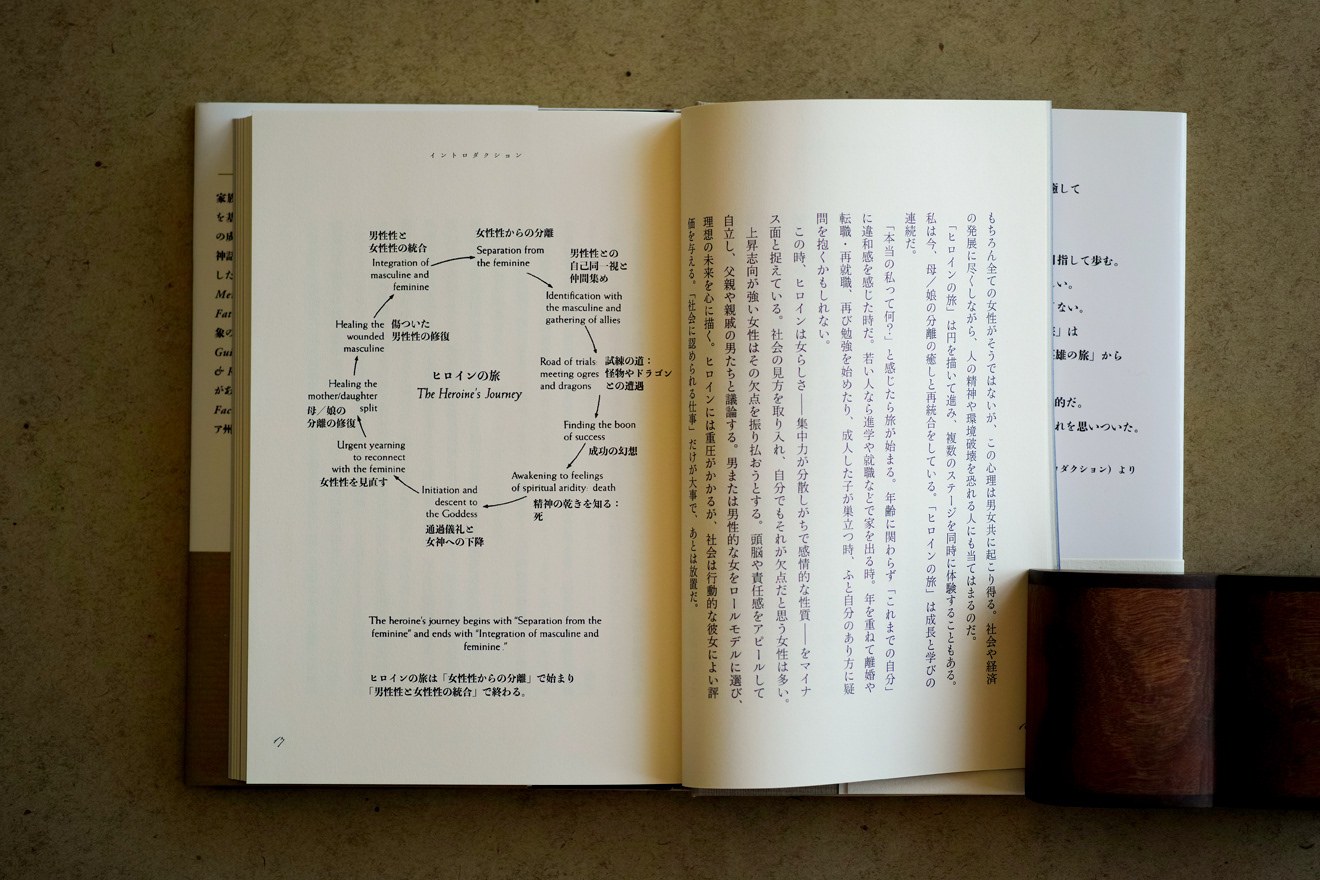 イントロダクション
男性性と
女性性の統合
Integration of
masculine and
feminine
女性性からの分離
Separation from
the feminine
男性性との
自己同一視と
仲間集め
Identification with
the masculine and
gathering of allies
Road of trials:
meeting ogres
and dragons
試練の道：
怪物やドラゴン
との遭遇
Finding the boon
of success
成功の幻想
Awakening to feelings
of spiritual aridity: death
精神の乾きを知る：
死
Initiation and
descent to
the Goddess
通過儀礼と
女神への下降
Urgent yearning
to reconnect
with the feminine
女性性を見直す
Healing the
mother/daughter
split
母／娘の
分離の修復
Healing the
wounded
masculine
傷ついた
男性性の修復
ヒロインの旅
The Heroine's Journey
The heroine's journey begins with “Separation from the
feminine” and ends with “Integration of masculine and
feminine .”
ヒロインの旅は「女性性からの分離」で始まり
「男性性と女性性の統合」で終わる。
13
もちろん全ての女性がそうではないが、この心理は男女共に起こり得る。社会や経済
の発展に尽くしながら、人の精神や環境破壊を恐れる人にも当てはまるのだ。
「ヒロインの旅」は円を描いて進み、複数のステージを同時に体験することもある。
私は今、母／娘の分離の癒しと再統合をしている。「ヒロインの旅」は成長と学びの
連続だ。
「本当の私って何？」と感じたら旅が始まる。年齢に関わらず「これまでの自分」
に違和感を感じた時だ。若い人なら進学や就職などで家を出る時。年を重ねて離婚や
転職・再就職、再び勉強を始めたり、成人した子が巣立つ時、ふと自分のあり方に疑
問を抱くかもしれない。
この時、ヒロインは女らしさ――集中力が分散しがちで感情的な性質――をマイナ
ス面と捉えている。社会の見方を取り入れ、自分でもそれが欠点だと思う女性は多い。
上昇志向が強い女性はその欠点を振り払おうとする。頭脳や責任感をアピールして
自立し、父親や親戚の男たちと議論する。男または男性的な女をロールモデルに選び、
理想の未来を心に描く。ヒロインには重圧がかかるが、社会は行動的な彼女によい評
価を与える。「社会に認められる仕事」だけが大事で、あとは放置だ。
家族
を基
の成
神話
した
Me
Fat
象の
Gui
& R
がお
Fac
ア州
癒して
目指して歩む。
い。
ない。
」は
英雄の旅」から
的だ。
れを思いついた。
ダクション）より